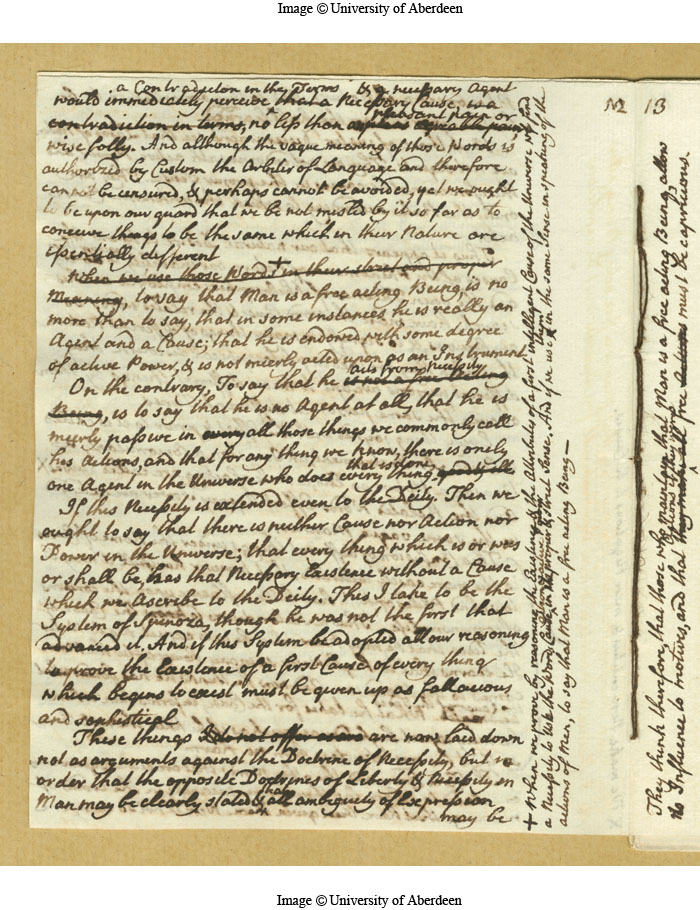 Image © University of Aberdeen
a Contradiction in the Terms & a necessary Agent
would immediately perceive that a Necessary Cause, is a
contradiction in terms, no less than pleasant pain or
wise folly. And although the vague meaning of those Words is
authorized by Custom the Arbiter of Language and therefore
cannot be censured, & perhaps cannot be avoided, yet we ought
to be upon our guard that we be not misled by it so far as to
conceive things to be the same which in their Nature are
essentially different
When we use those Words + in their strict and proper
Meaning, to say that Man is a free acting Being, is no
more than to say, that in some instances he is really an
Agent and a Cause; that he is endowed with some degree
of active Power, & is not meerly acted upon as an Instrument
On the contrary, To say that he acts from necessity is not a free Acting
Being, is to say that he is no Agent at all, that he is
meerly passive in every all those things we commonly call
his Actions, and that for any thing we know, there is onely
one Agent in the Universe who does every thing that is done
If this Necessity is extended even to the Deity. Then we
ought to say that there is neither Cause nor Action nor
Power in the Universe; that every thing which is or was
or shall be, has that Necessary Existence without a Cause
which we Ascribe to the Deity. This I take to be the
System of Spinoza, though he was not the first that
advanced it. And if this System be adopted all our reasoning
to prove the Existence of a first Cause of every thing
which begins to exist must be given up as fallacious
and sophistical
These things I do not offer as are now laid down
not as arguments against the Doctrine of Necessity, but in
order that the opposite Doctrines of Liberty & Necessity in
Man may be clearly stated & that all ambiguity of Expression
may be
+ When we prove by reasoning the Existence & the Attributes of a first intelligent Cause of the Universe we find
a Necessity to use the Words Cause, in the proper & strict Sense. And if we use them in the same Sense in speaking of the
actions of Men, to say that Man is a free acting Being—
13
They think therefore, that those who maintain that Man is a free acting Being, allow
no Influence to motives, and that all free actions must be capricious.
Image © University of Aberdeen